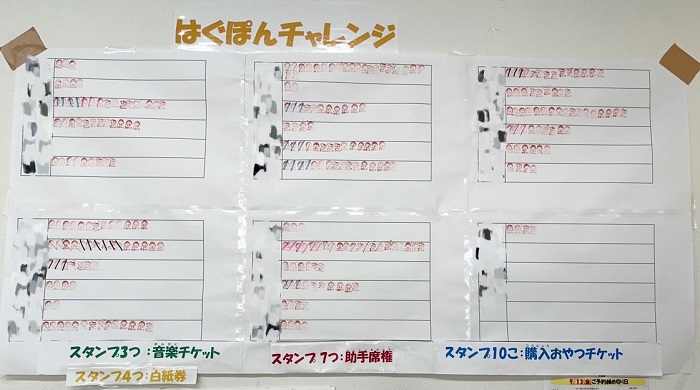 はぐぽんチャレンジ
スタンプ3つ:音楽チケット
スタンプ4つ:白紙券
スタンプ7つ:助手席権
スタンプ10こ:購入おやつチケット